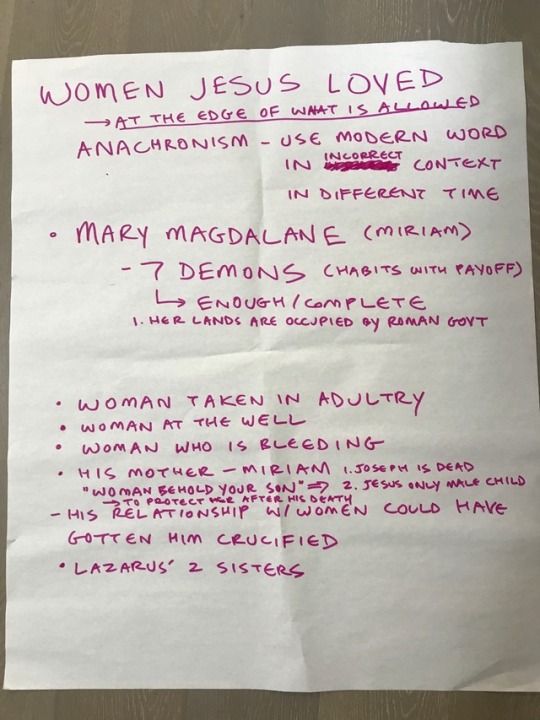 WOMEN JESUS LOVED
→ AT THE EDGE OF WHAT IS ALLOWED
ANACHRONISM - USE MODERN WORD
IN INCORRECT CONTEXT
IN DIFFERENT TIME
• MARY MAGDALANE (MIRIAM)
- 7 DEMONS (HABITS WITH PAYOFF)
↳ ENOUGH / COMPLETE
1. HER LANDS ARE OCCUPIED BY ROMAN GOVT
• WOMAN TAKEN IN ADULTRY
• WOMAN AT THE WELL
• WOMAN WHO IS BLEEDING
• HIS MOTHER - MIRIAM 1. JOSEPH IS DEAD
"WOMAN BEHOLD YOUR SON" ⇒ 2. JESUS ONLY MALE CHILD
→ TO PROTECT HER AFTER HIS DEATH
- HIS RELATIONSHIP W/ WOMEN COULD HAVE
GOTTEN HIM CRUCIFIED
• LAZARUS' 2 SISTERS